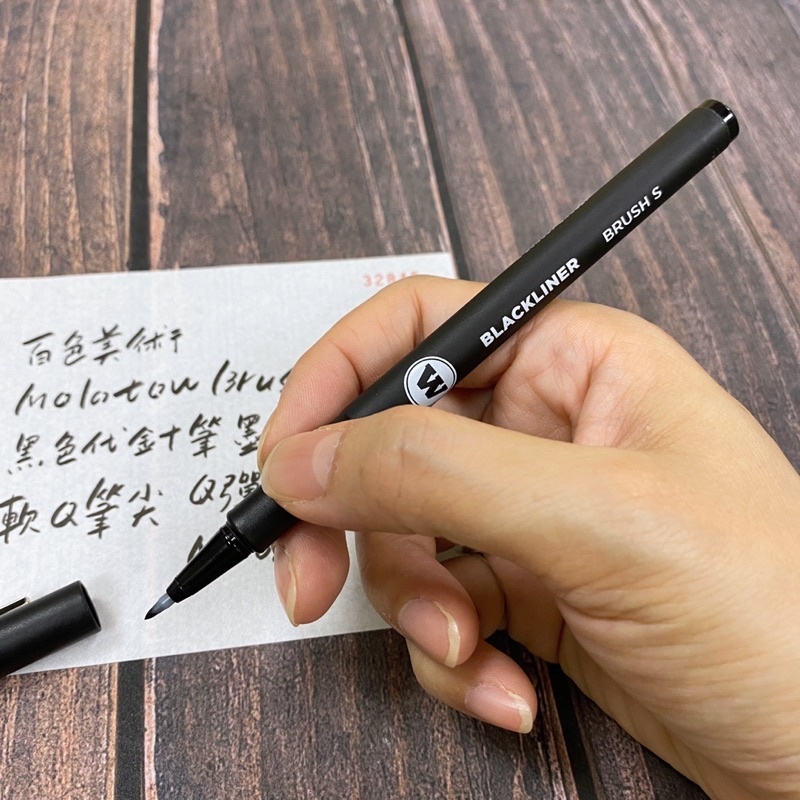 百色美術
Molotow Brus
黑色代針筆墨
軟Q筆尖 Q彈
BLACKLINER BRUSH S